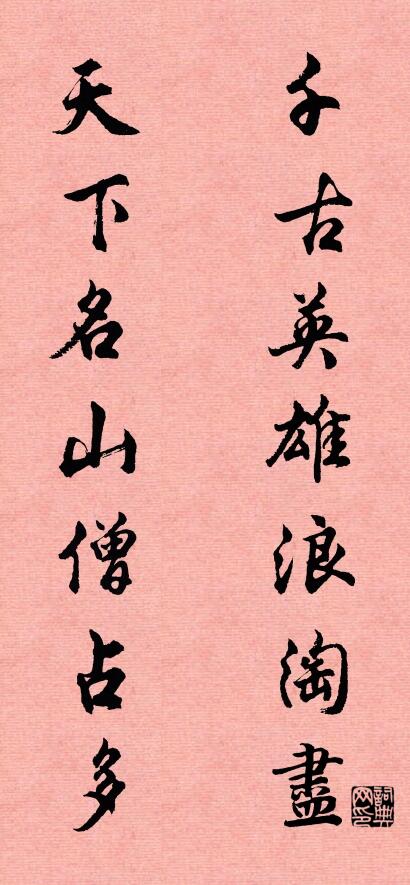 千古英雄浪淘盡
天下名山僧占多
詞典
网印